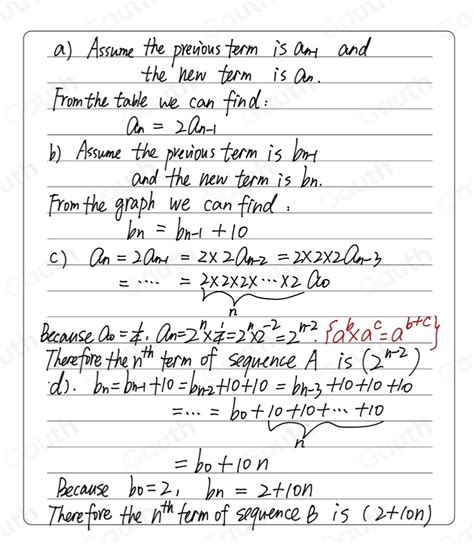 a) Assume the previous term is aₙ₋₁ and
the new term is aₙ.
From the table we can find:
aₙ = 2aₙ₋₁
b) Assume the previous term is bₙ₋₁
and the new term is bₙ.
From the graph we can find:
bₙ = bₙ₋₁ + 10
c) aₙ = 2aₙ₋₁ = 2×2aₙ₋₂ = 2×2×2aₙ₋₃
= ···· = 2×2×2×···×2 a₀
n
Because a₀ = ¼, aₙ = 2ⁿ×¼ = 2ⁿ×2⁻² = 2ⁿ⁻². {aᵇ×aᶜ = aᵇ⁺ᶜ}
Therefore the nᵗʰ term of sequence A is (2ⁿ⁻²)
d). bₙ = bₙ₋₁+10 = bₙ₋₂+10+10 = bₙ₋₃+10+10+10
= ··· = b₀ + 10 +10+ ··· +10
n
= b₀ + 10n
Because b₀ = 2, bₙ = 2+10n
Therefore the nᵗʰ term of sequence B is (2+10n)
Gauth